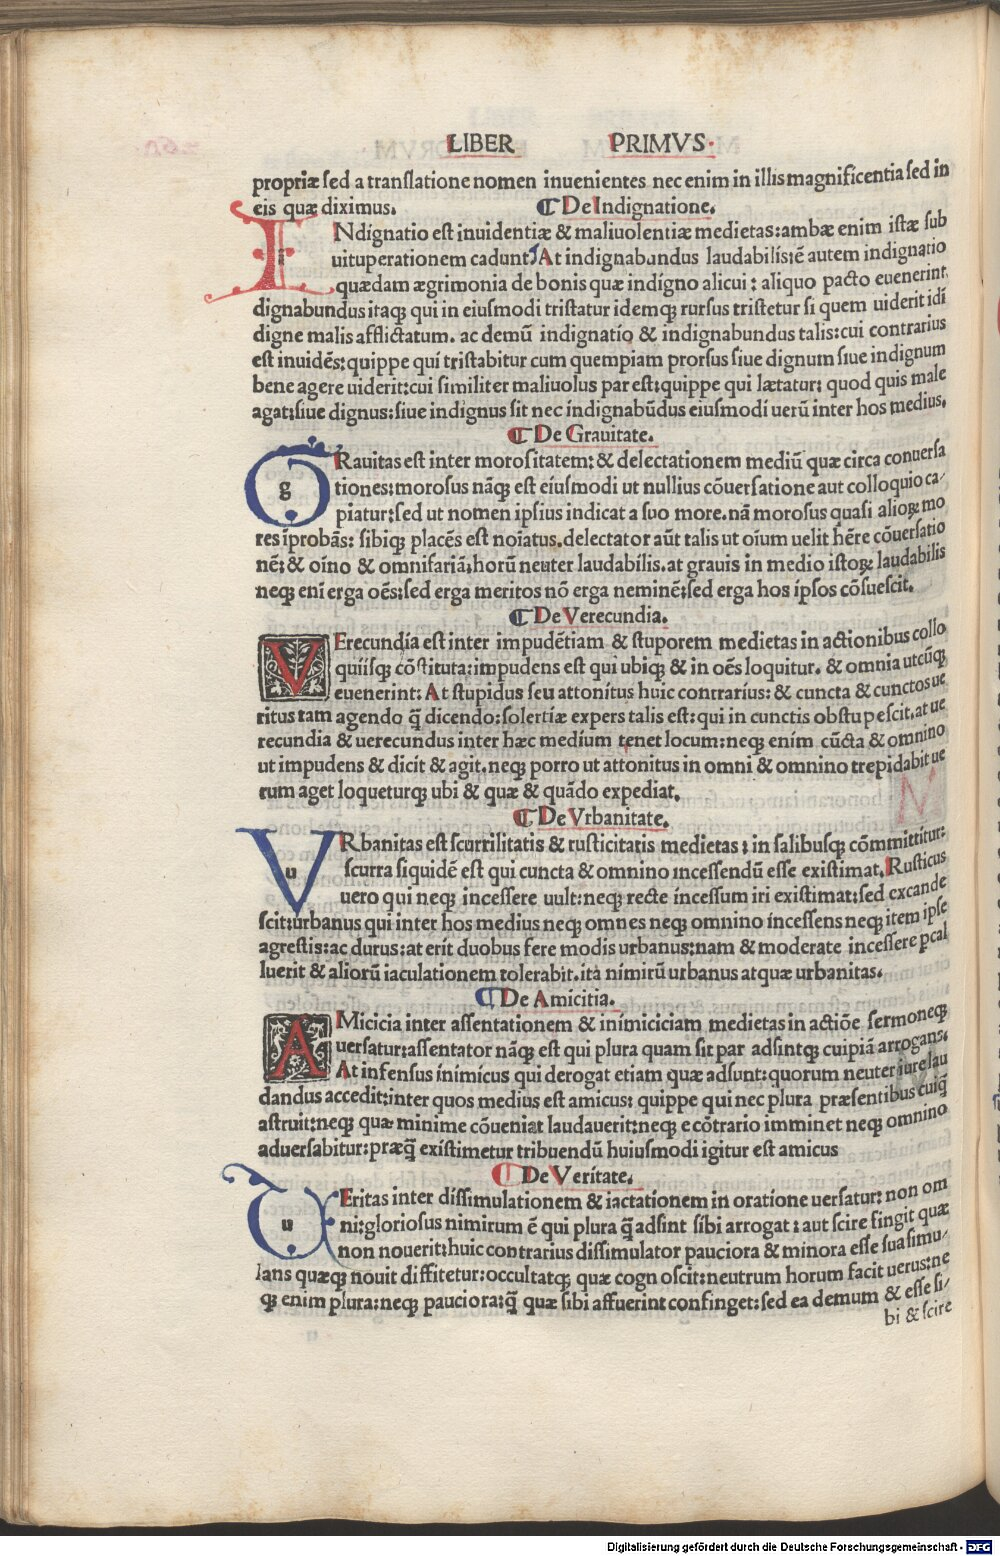 LIBER PRIMVS.
propriæ ſed a tranſlatione nomen inuenientes nec enim in illis magnificentia ſed in
eis quæ diximus. ⸿ De Indignatione.
INdignatio eſt inuidentiæ & maliuolentiæ medietas: ambæ enim iſtæ ſub
uituperationem cadunt. At indignabundus laudabilis: ē autem indignatio
quædam ægrimonia de bonis quæ indigno alicui: aliquo pacto euenerint.
dignabundus itaqꝫ qui in eiuſmodi triſtatur idemqꝫ rurſus triſtetur ſi quem uiderit idi
digne malis afflictatum. ac demū indignatio & indignabundus talis: cui contrarius
eſt inuidēs: quippe qui triſtabitur cum quempiam prorſus ſiue dignum ſiue indignum
bene agere uiderit: cui ſimiliter maliuolus par eſt: quippe qui lætatur: quod quis male
agat: ſiue dignus: ſiue indignus ſit nec indignabūdus eiuſmodi uerū inter hos medius.
⸿ De Grauitate.
g
GRauitas eſt inter moroſitatem: & delectationem mediū quæ circa conuerſa
tiones: moroſus nāqꝫ eſt eiuſmodi ut nullius cōuerſatione aut colloquio ca-
piatur: ſed ut nomen ipſius indicat a ſuo more. nā moroſus quaſi alioꝝ mo
res īprobās: ſibiqꝫ placēs eſt noīatus. delectator aūt talis ut oīum uelit hēre cōuerſatio
nē: & oīno & omnifariā: horū neuter laudabilis. at grauis in medio iſtoꝝ laudabilis
neqꝫ eni erga oēs: ſed erga meritos nō erga neminē: ſed erga hos ipſos cōſueſcit.
⸿ De Verecundia.
VErecundia eſt inter impudētiam & ſtuporem medietas in actionibus collo
quiiſqꝫ cōſtituta: impudens eſt qui ubiqꝫ & in oēs loquitur. & omnia utcūqꝫ
euenerint: At ſtupidus ſeu attonitus huic contrarius: & cuncta & cunctos ue
ritus tam agendo q̄ dicendo: ſolertiæ expers talis eſt: qui in cunctis obſtupeſcit. at ue
recundia & uerecundus inter hæc medium tenet locum: neqꝫ enim cūcta & omnino
ut impudens & dicit & agit. neqꝫ porro ut attonitus in omni & omnino trepidabit ue
rum aget loqueturqꝫ ubi & quæ & quādo expediat.
⸿ De Vrbanitate.
u
VRbanitas eſt scurrilitatis & ruſticitatis medietas: in ſalibuſqꝫ cōmittitur:
ſcurra ſiquidē eſt qui cuncta & omnino inceſſendū eſſe exiſtimat. Ruſticus
uero qui neqꝫ inceſſere uult: neqꝫ recte inceſſum iri exiſtimat: ſed excande
ſcit: urbanus qui inter hos medius neqꝫ omnes neqꝫ omnino inceſſens neqꝫ item ipſe
agreſtis: ac durus: at erit duobus fere modis urbanus: nam & moderate inceſſere pcal
luerit & aliorū iaculationem tolerabit. ita nimirū urbanus atquæ urbanitas.
⸿ De Amicitia.
AMicicia inter aſſentationem & inimiciciam medietas in actiōe ſermoneqꝫ
uerſatur: aſſentator nāqꝫ eſt qui plura quam ſit par adſintqꝫ cuipiā arrogans:
At infenſus inimicus qui derogat etiam quæ adſunt: quorum neuter iure lau
dandus accedit: inter quos medius eſt amicus: quippe qui nec plura præſentibus cuiq̄
aſtruit: neqꝫ quæ minime cōueniat laudauerit: neqꝫ e cōtrario imminet neqꝫ omnino
aduerſabitur: præq̄ exiſtimetur tribuendū huiuſmodi igitur eſt amicus
⸿ De Veritate.
u
VEritas inter diſſimulationem & iactationem in oratione uerſatur: non om
ni: glorioſus nimirum ē qui plura q̄ adſint ſibi arrogat: aut ſcire fingit quæ
non nouerit: huic contrarius diſſimulator pauciora & minora eſſe ſua ſimu-
lans quæqꝫ nouit diffitetur: occultatqꝫ quæ cognoſcit: neutrum horum facit uerus: ne
qꝫ enim plura: neqꝫ pauciora: q̄ quæ ſibi affuerint confinget: ſed ea demum & eſſe ſi-
bi & ſcire
Digitalisierung gefördert durch die Deutsche Forschungsgemeinschaft - DFG